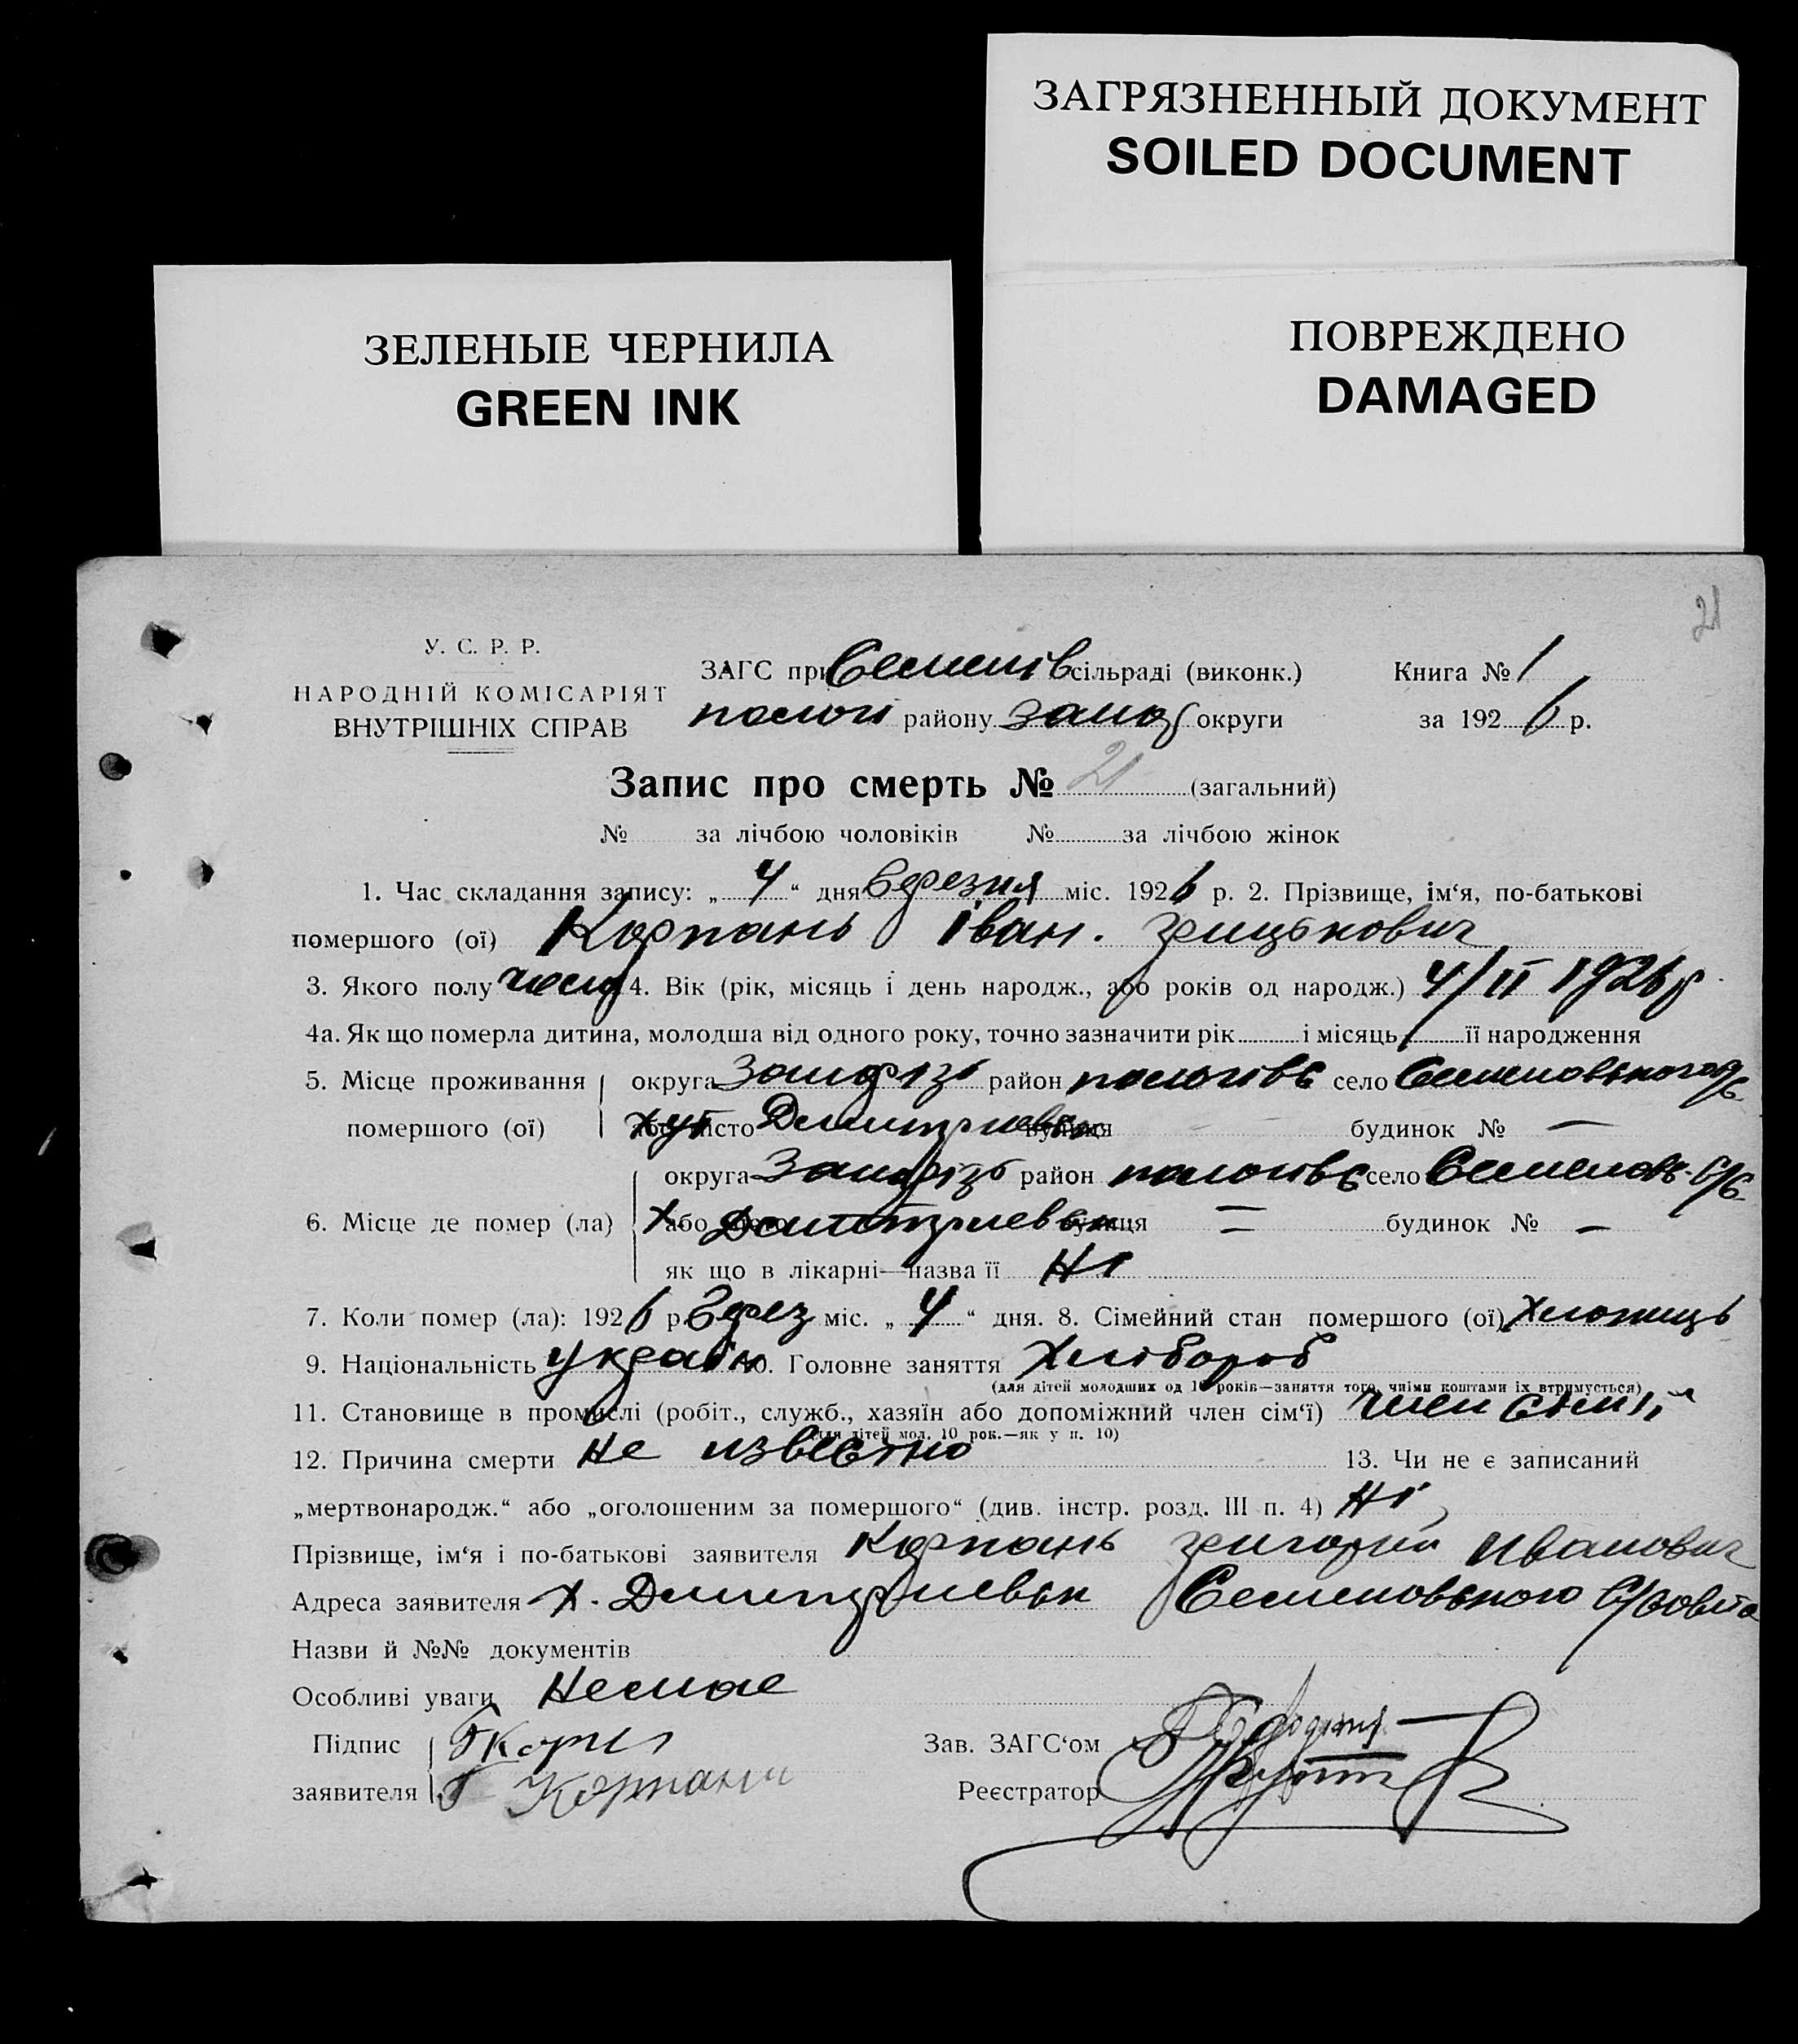 ЗАГРЯЗНЕННЫЙ ДОКУМЕНТ
SOILED DOCUMENT
ЗЕЛЕНЫЕ ЧЕРНИЛА
GREEN INK
ПОВРЕЖДЕНО
DAMAGED
21
У. С. Р. Р.
НАРОДНІЙ КОМІСАРІЯТ
ВНУТРІШНІХ СПРАВ
ЗАГС при Семенів сільраді (виконк.) Книга № 1
пологі району запоз округи за 1926 р.
Запис про смерть № 21 (загальний)
№ за лічбою чоловіків № за лічбою жінок
1. Час складання запису: „ 4 “ дня березня міс. 1926 р. 2. Прізвище, ім‘я, по-батькові
помершого (ої) Корпань Іван. Грицькович
3. Якого полу чолу 4. Вік (рік, місяць і день народж., або років од народж.) 4/II 1926 р.
4а. Як що померла дитина, молодша від одного року, точно зазначити рік і місяць її народження
5. Місце проживання округа Запоріз район пологівс село Семеновського с/с
помершого (ої) хут Дмитриевки будинок № —
округа Запоріз район пологівс село Семенов. С/С
6. Місце де помер (ла) Х. або Дмитриевки вулиця = будинок № —
як що в лікарні—назва її Ні
7. Коли помер (ла): 1926 р. Берез міс. „ 4 “ дня. 8. Сімейний стан помершого (ої) Хлопиць
9. Національність україн 10. Головне заняття Хлібороб
(для дітей молодших од 10 років—заняття того, чиїми коштами їх втримується)
11. Становище в промислі (робіт., служб., хазяїн або допоміжний член сім‘ї) член сімї
(для дітей мол. 10 рок.—як у п. 10)
12. Причина смерти Не известно 13. Чи не є записаний
„мертвонародж.“ або „оголошеним за помершого“ (див. інстр. розд. III п. 4) Ні
Прізвище, ім‘я і по-батькові заявителя Корпань Григорий Иванович
Адреса заявителя х. Дмитриевки Семеновського С/Совита
Назви й №№ документів
Особливі уваги Немае
Підпис Г Корп Зав. ЗАГС‘ом
заявителя Г Корпань Реєстратор